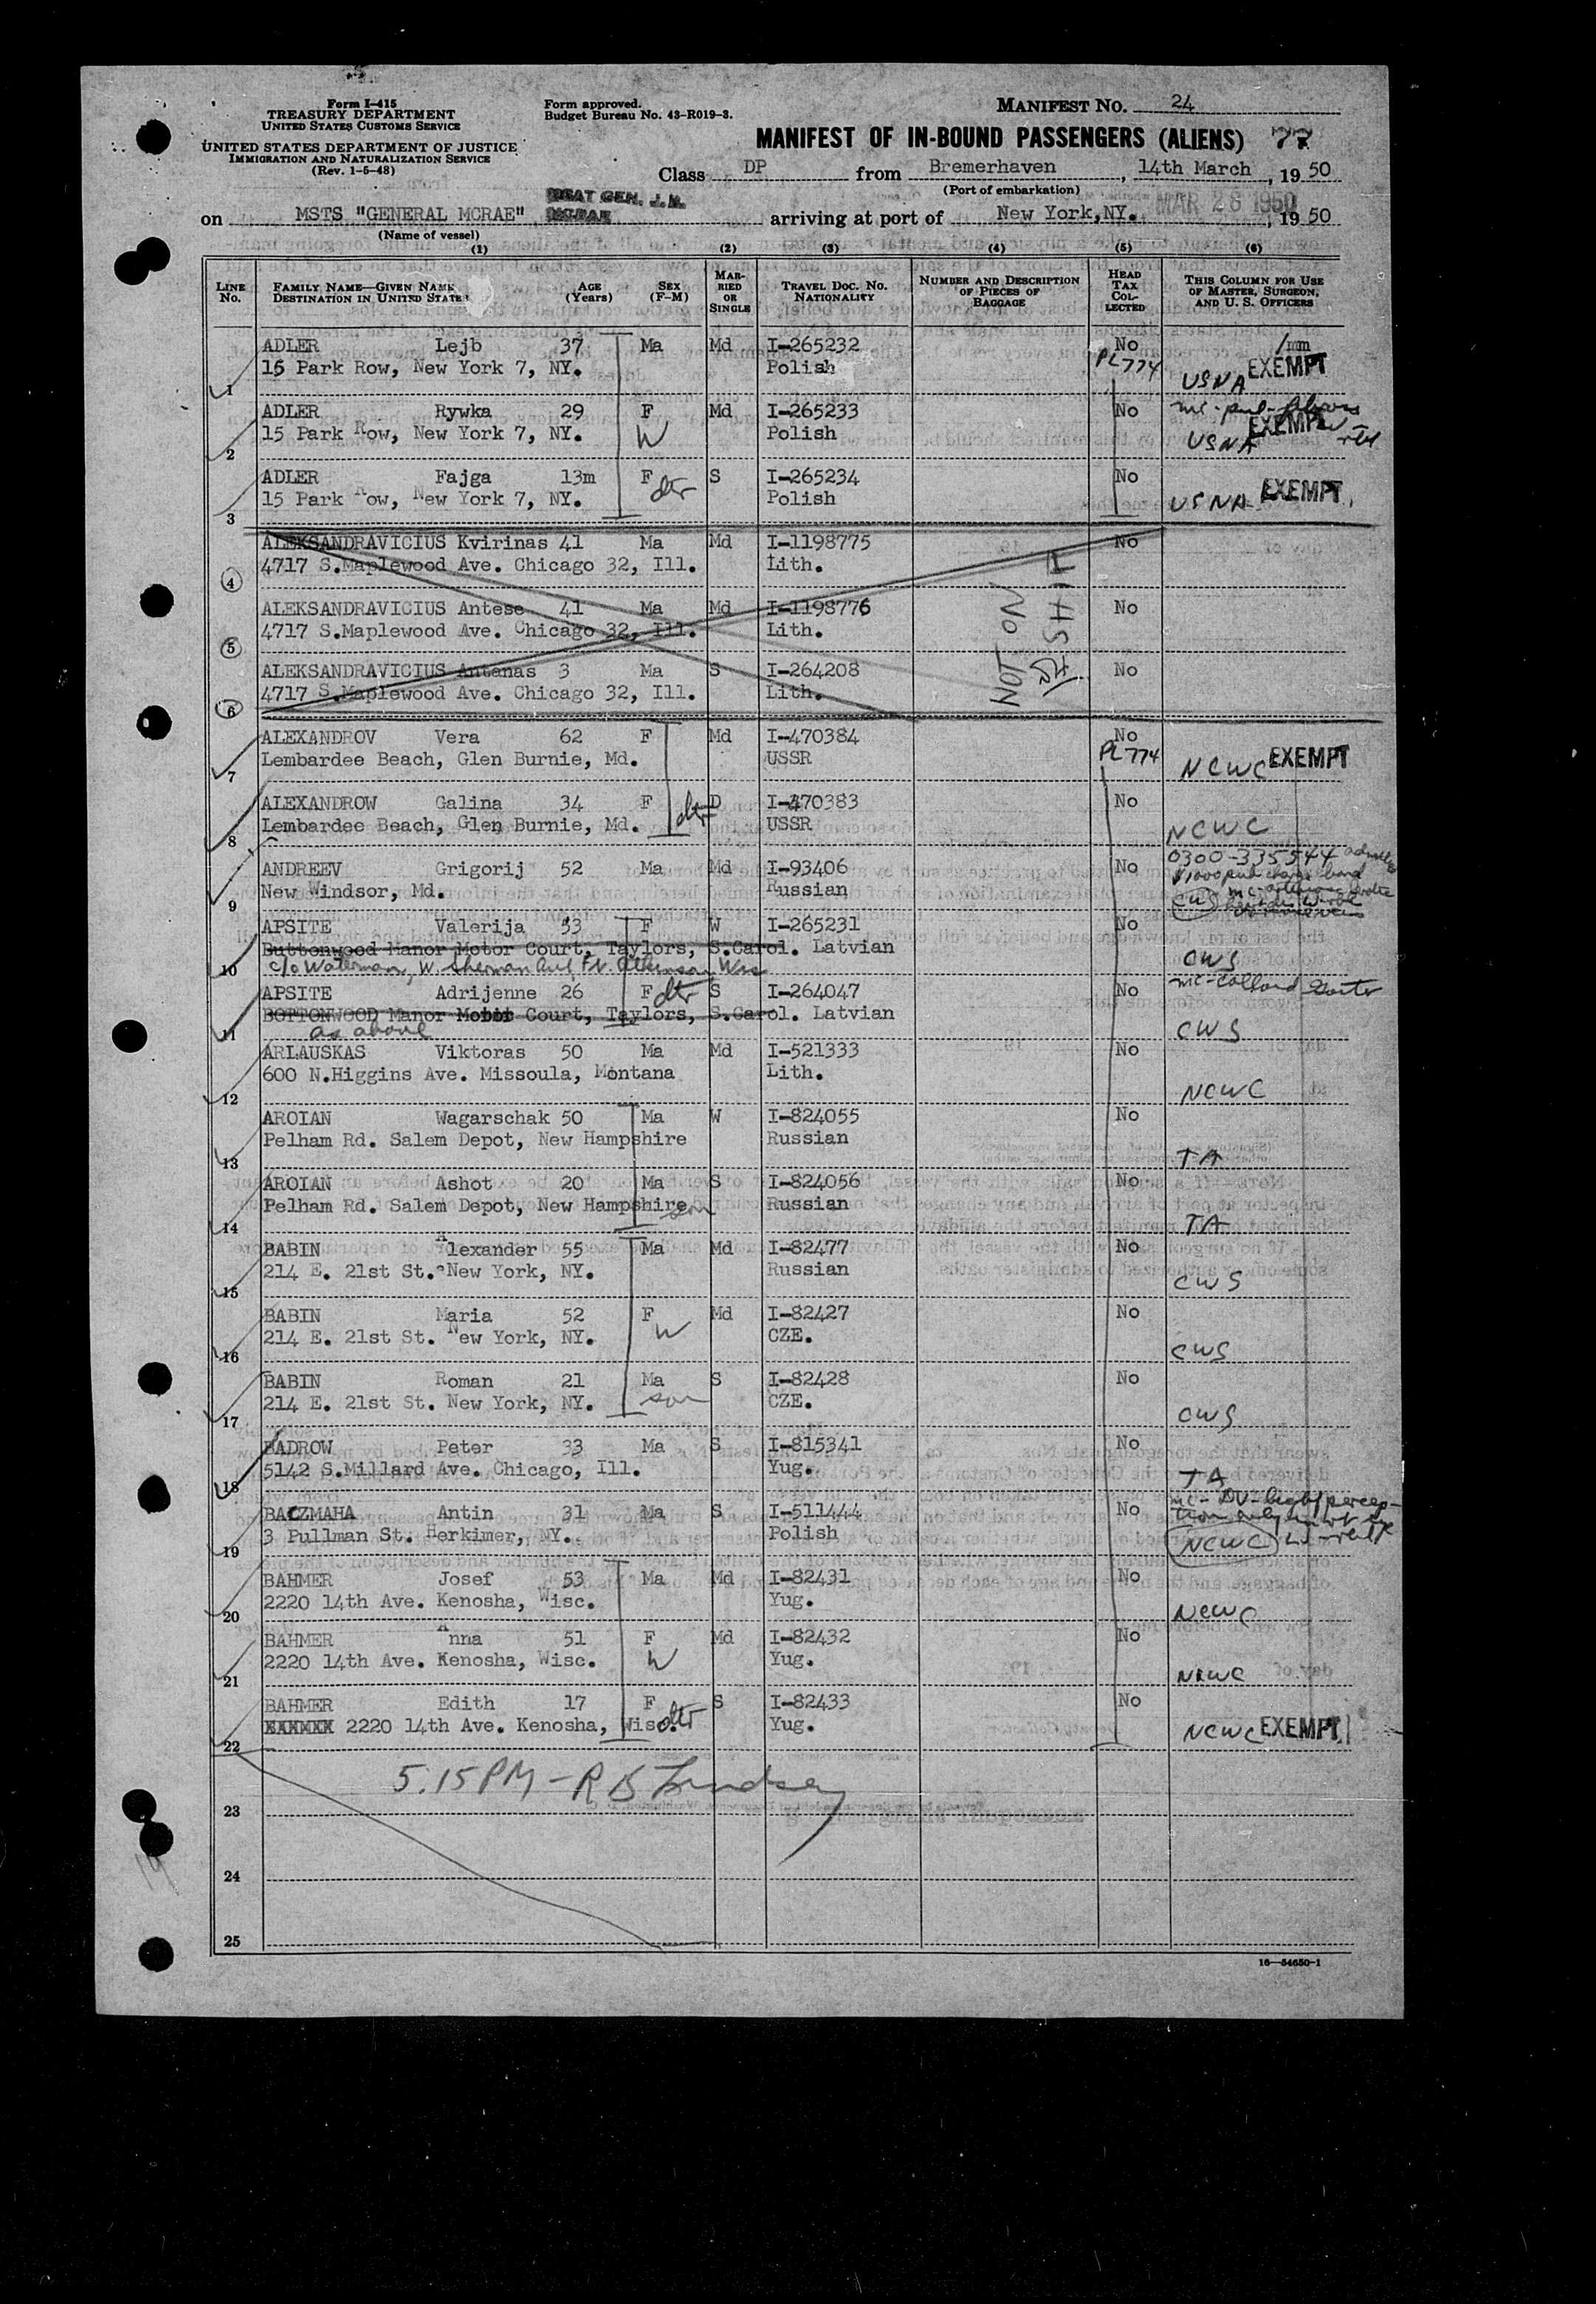 Form I-415
TREASURY DEPARTMENT
UNITED STATES CUSTOMS SERVICE
UNITED STATES DEPARTMENT OF JUSTICE
IMMIGRATION AND NATURALIZATION SERVICE
(Rev. 1-5-48)
Form approved.
Budget Bureau No. 43-R019-3.
MANIFEST NO. 24
MANIFEST OF IN-BOUND PASSENGERS (ALIENS) 77
Class DP from Bremerhaven, 14th March, 1950
(Port of embarkation)
on MSTS "GENERAL MCRAE" USAT GEN. J.H. MCRAE arriving at port of New York,NY. MAR 28 1950, 1950
(Name of vessel)
(1) (2) (3) (4) (5) (6)
LINE No. FAMILY NAME—GIVEN NAME DESTINATION IN UNITED STATES AGE (Years) SEX (F-M) MARRIED OR SINGLE TRAVEL DOC. NO. NATIONALITY NUMBER AND DESCRIPTION OF PIECES OF BAGGAGE HEAD TAX COLLECTED THIS COLUMN FOR USE OF MASTER, SURGEON, AND U. S. OFFICERS
ADLER Lejb 37 Ma Md I-265232 No
15 Park Row, New York 7, NY. Polish PL774 USNA EXEMPT
1
ADLER Rywka 29 F Md I-265233 No
15 Park Row, New York 7, NY. W Polish USNA EXEMPT
2
ADLER Fajga 13m F dtr S I-265234 No
15 Park Row, New York 7, NY. Polish USNA EXEMPT
3
ALEKSANDRAVICIUS Kvirinas 41 Ma Md I-1198775 No
4717 S.Maplewood Ave. Chicago 32, Ill. Lith.
4
ALEKSANDRAVICIUS Antese 41 Ma Md I-1198776 No
4717 S.Maplewood Ave. Chicago 32, Ill. Lith. NOT ON
5
ALEKSANDRAVICIUS Antanas 3 Ma S I-264208 No
4717 S.Maplewood Ave. Chicago 32, Ill. Lith.
6
ALEXANDROV Vera 62 F Md I-470384 No
Lembardee Beach, Glen Burnie, Md. USSR PL774 NCWC EXEMPT
7
ALEXANDROW Galina 34 F dtr D I-470383 No
Lembardee Beach, Glen Burnie, Md. USSR NCWC
8
ANDREEV Grigorij 52 Ma Md I-93406 No 0300-335544
New Windsor, Md. Russian
9
APSITE Valerija 53 F W I-265231 No
Buttonwood Manor Motor Court, Taylors, S.Carol. Latvian
c/o Waterman, W. Sherman Ave Ft. Atkinson Wis CWS
10
APSITE Adrijenne 26 F dtr S I-264047 No
BOTTONWOOD Manor Motor Court, Taylors, S.Carol. Latvian
as above CWS
11
ARLAUSKAS Viktoras 50 Ma Md I-521333 No
600 N.Higgins Ave. Missoula, Montana Lith. NCWC
12
AROIAN Wagarschak 50 Ma W I-824055 No
Pelham Rd. Salem Depot, New Hampshire Russian TA
13
AROIAN Ashot 20 Ma S I-824056 No
Pelham Rd. Salem Depot, New Hampshire son Russian TA
14
BABIN Alexander 55 Ma Md I-82477 No
214 E. 21st St. New York, NY. Russian CWS
15
BABIN Maria 52 F Md I-82427 No
214 E. 21st St. New York, NY. W CZE. CWS
16
BABIN Roman 21 Ma S I-82428 No
214 E. 21st St. New York, NY. son CZE. CWS
17
BADROW Peter 33 Ma S I-815341 No
5142 S.Millard Ave. Chicago, Ill. Yug. TA
18
BACZMAHA Antin 31 Ma S I-511444 No
3 Pullman St. Herkimer, NY. Polish NCWC
19
BAHMER Josef 53 Ma Md I-82431 No
2220 14th Ave. Kenosha, Wisc. Yug. NCWC
20
BAHMER Anna 51 F Md I-82432 No
2220 14th Ave. Kenosha, Wisc. W Yug. NCWC
21
BAHMER Edith 17 F S I-82433 No
2220 14th Ave. Kenosha, Wisc. dtr Yug. NCWC EXEMPT
22
5.15PM - R B Lindsey
23
24
25
16—54650-1